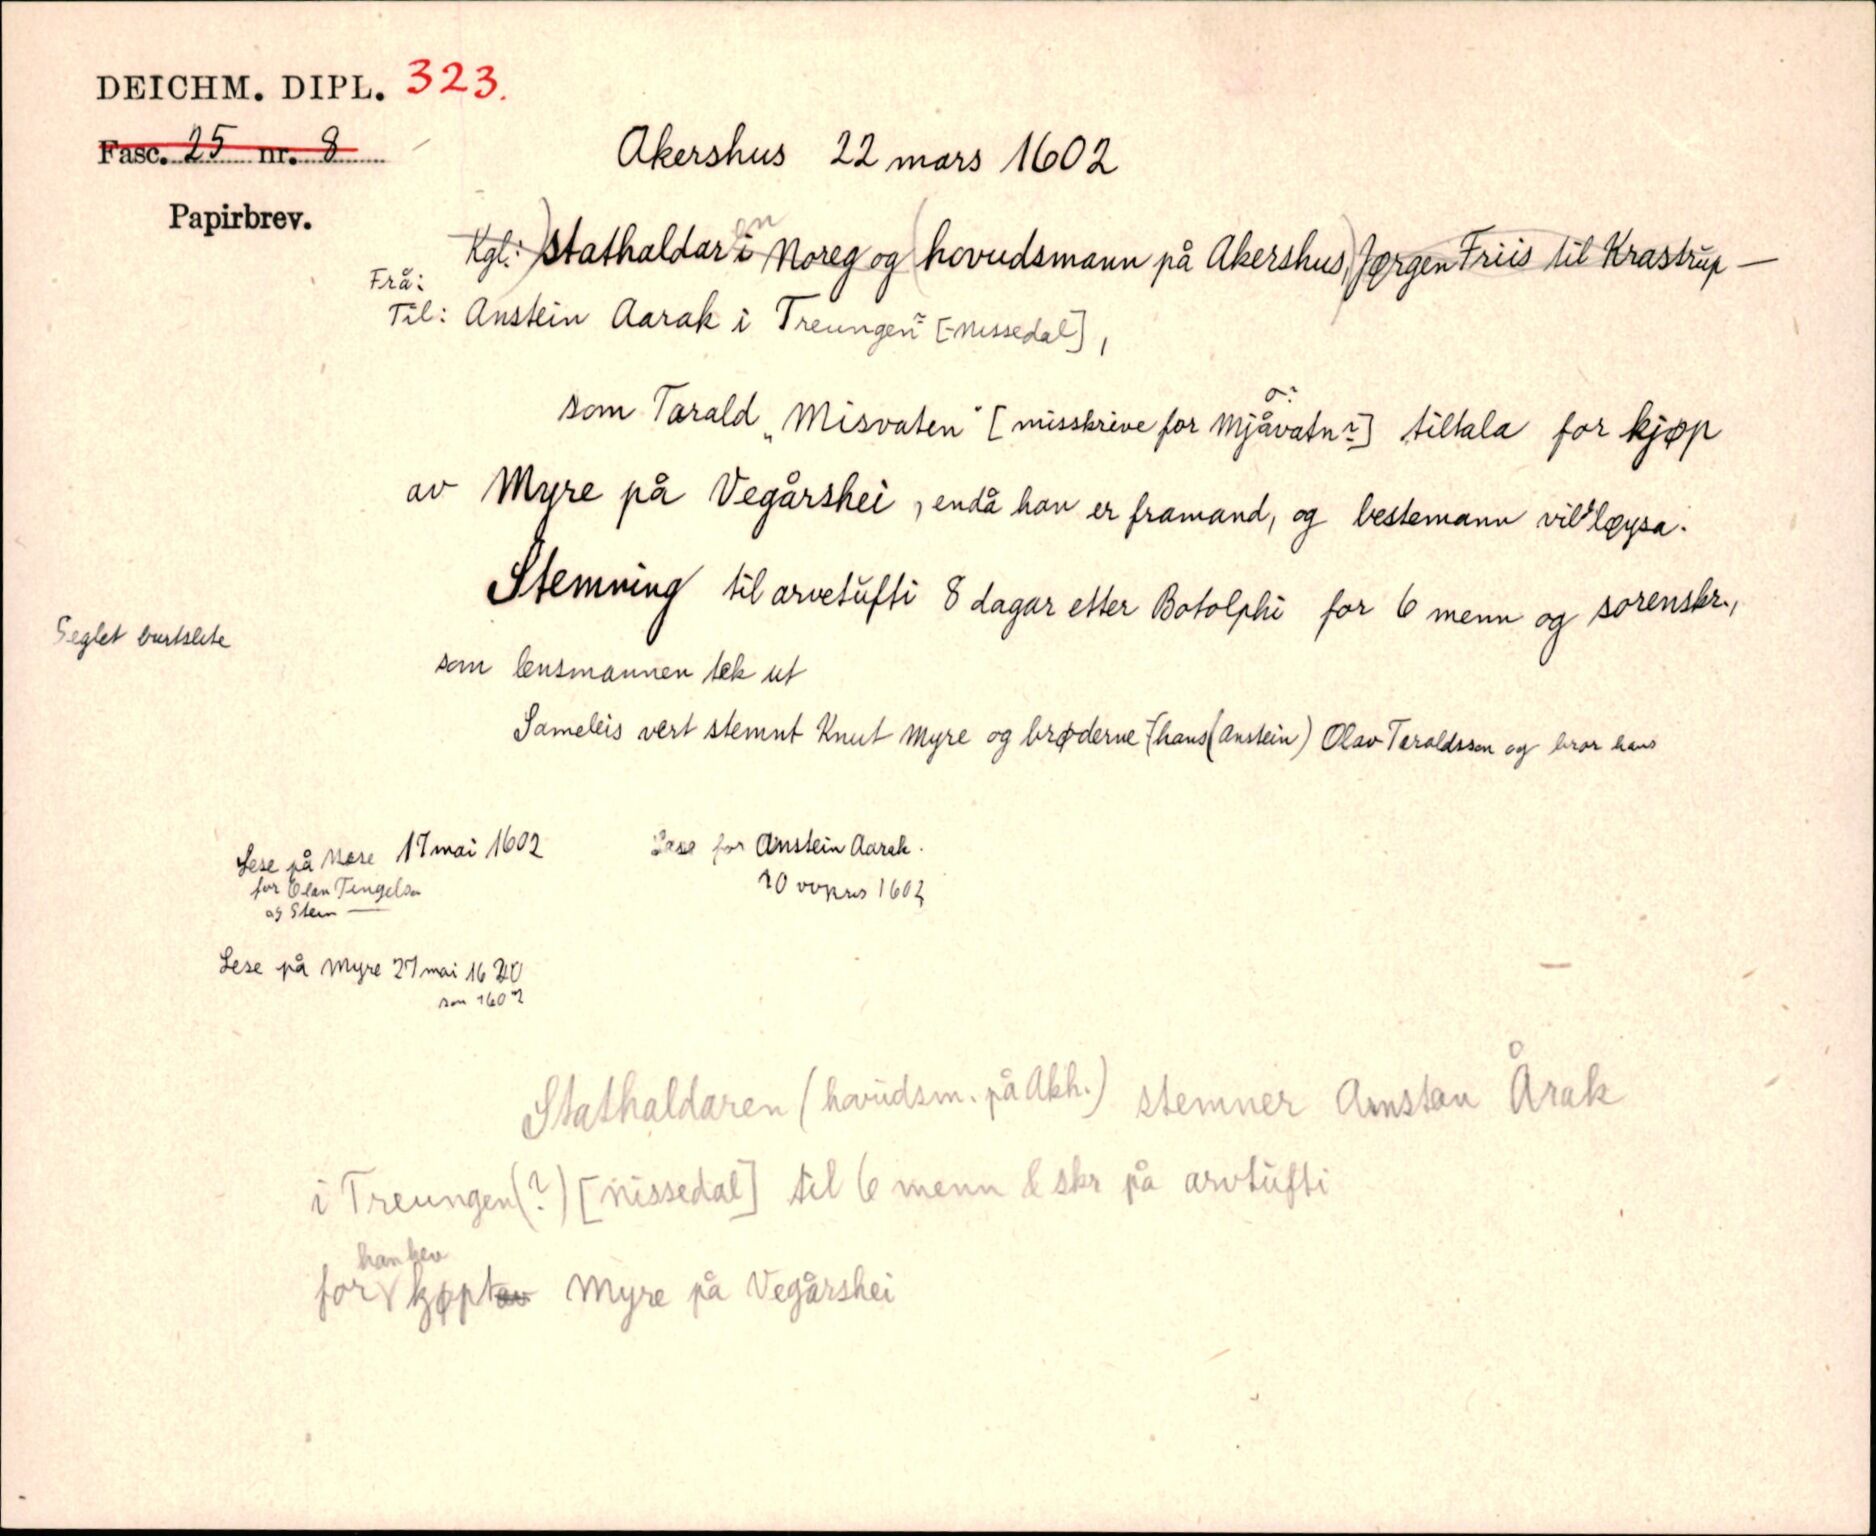 DEICHM. DIPL. 323.
Fasc. 25 nr. 8
Akershus 22 mars 1602
Papirbrev.
Kgl: stathaldaren i Noreg og (hovudsmann på Akershus) Jørgen Friis til Krastrup —
Frå:
Til: Anstein Aarak i Treungen? [Nissedal],
som Tarald „Misvaten" [misskrive for Mjåvatn?] tiltala for kjøp
av Myre på Vegårshei, endå han er framand, og bestemann vil løysa.
Stemning til arvetufti 8 dagar etter Botolphi for 6 menn og sorenskr.,
Seglet burtslite
som lensmannen tek ut
Sameleis vert stemnt Knut Myre og brøderne hans (Anstein) Olav Taraldsson og bror hans
Lese på Nese 17 mai 1602
for Olav Tengelsn
og Stein —
Lese for Anstein Aarak.
1602
Lese på Myre 27 mai 1620
son 1602
Stathaldaren (hovudsm. på Akh.) stemner Arnstan Årak
i Treungen (?) [Nissedal] til 6 menn & skr på arvtufti
for han hev kjøpt av Myre på Vegårshei